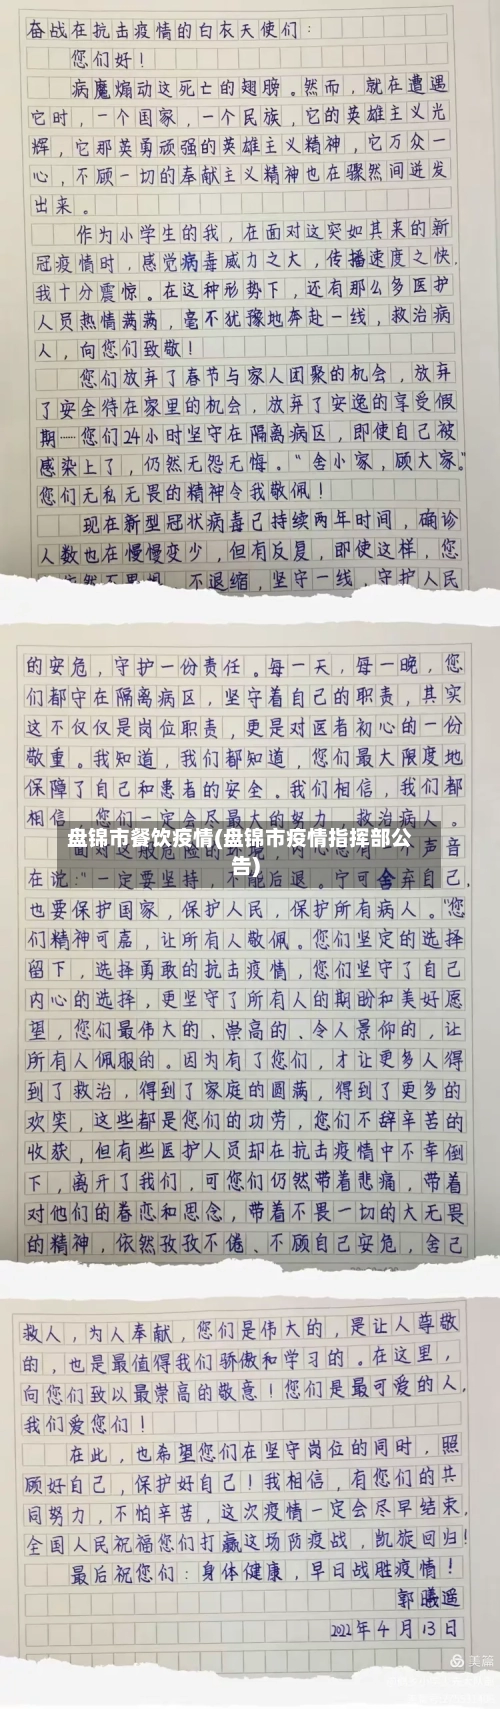 奋战在抗击疫情的白衣天使们：
您们好！
病魔煽动这死亡的翅膀。然而，就在遭遇
它时，一个国家，一个民族，它的英雄主义光
辉，它那英勇顽强的英雄主义精神，它万众一
心，不顾一切的奉献主义精神也在骤然间迸发
出来。
作为小学生的我，在面对这突如其来的新
冠疫情时，感觉病毒威力之大，传播速度之快，
我十分震惊。在这种形势下，还有那么多医护
人员热情满满，毫不犹豫地奔赴一线，救治病
人，向您们致敬！
您们放弃了春节与家人团聚的机会，放弃
了安全待在家里的机会，放弃了安逸的享受假
期……您们24小时坚守在隔离病区，即使自己被
感染上了，仍然无怨无悔。“舍小家，顾大家。”
您们无私无畏的精神令我敬佩！
现在新型冠状病毒已持续两年时间，确诊
人数也在慢慢变少，但有反复，即使这样，您
不退缩，坚守一线，守护人民
的安危，守护一份责任。每一天，每一晚，您
们都守在隔离病区，坚守着自己的职责，其实
这不仅仅是岗位职责，更是对医者初心的一份
敬重。我知道，我们都知道，您们最大限度地
保障了自己和患者的安全。我们相信，我们都
相信，您们一定会尽最大的努力，救治病人。
盘锦市餐饮疫情(盘锦市疫情指挥部公
告)
声音
在说：“一定要坚持，不能后退。宁可舍弃自己，
也要保护国家，保护人民，保护所有病人。”您
们精神可嘉，让所有人敬佩。您们坚定的选择
留下，选择勇敢的抗击疫情，您们坚守了自己
内心的选择，更坚守了所有人的期盼和美好愿
望，您们最伟大的、崇高的、令人景仰的，让
所有人佩服的。因为有了您们，才让更多人得
到了救治，得到了家庭的圆满，得到了更多的
欢笑，这些都是您们的功劳，您们不辞辛苦的
收获，但有些医护人员却在抗击疫情中不幸倒
下，离开了我们，可您们仍然带着悲痛，带着
对他们的眷恋和思念，带着不畏一切的大无畏
的精神，依然孜孜不倦、不顾自己安危，舍己
救人，为人奉献，您们是伟大的，是让人尊敬
的，也是最值得我们骄傲和学习的。在这里，
向您们致以最崇高的敬意！您们是最可爱的人，
我们爱您们！
在此，也希望您们在坚守岗位的同时，照
顾好自己，保护好自己！我相信，有您们的共
同努力，不怕辛苦，这次疫情一定会尽早结束，
全国人民祝福您们打赢这场防疫战，凯旋回归！
最后祝您们：身体健康，早日战胜疫情！
郭曦遥
2022年4月13日
美篇